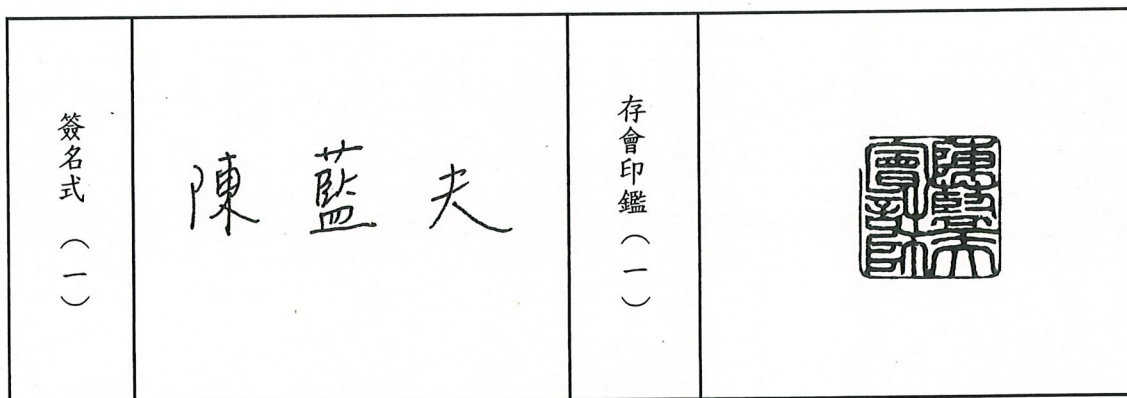 簽名式（一）
陳藍夫
存會印鑑（一）
陳藍夫
會計師